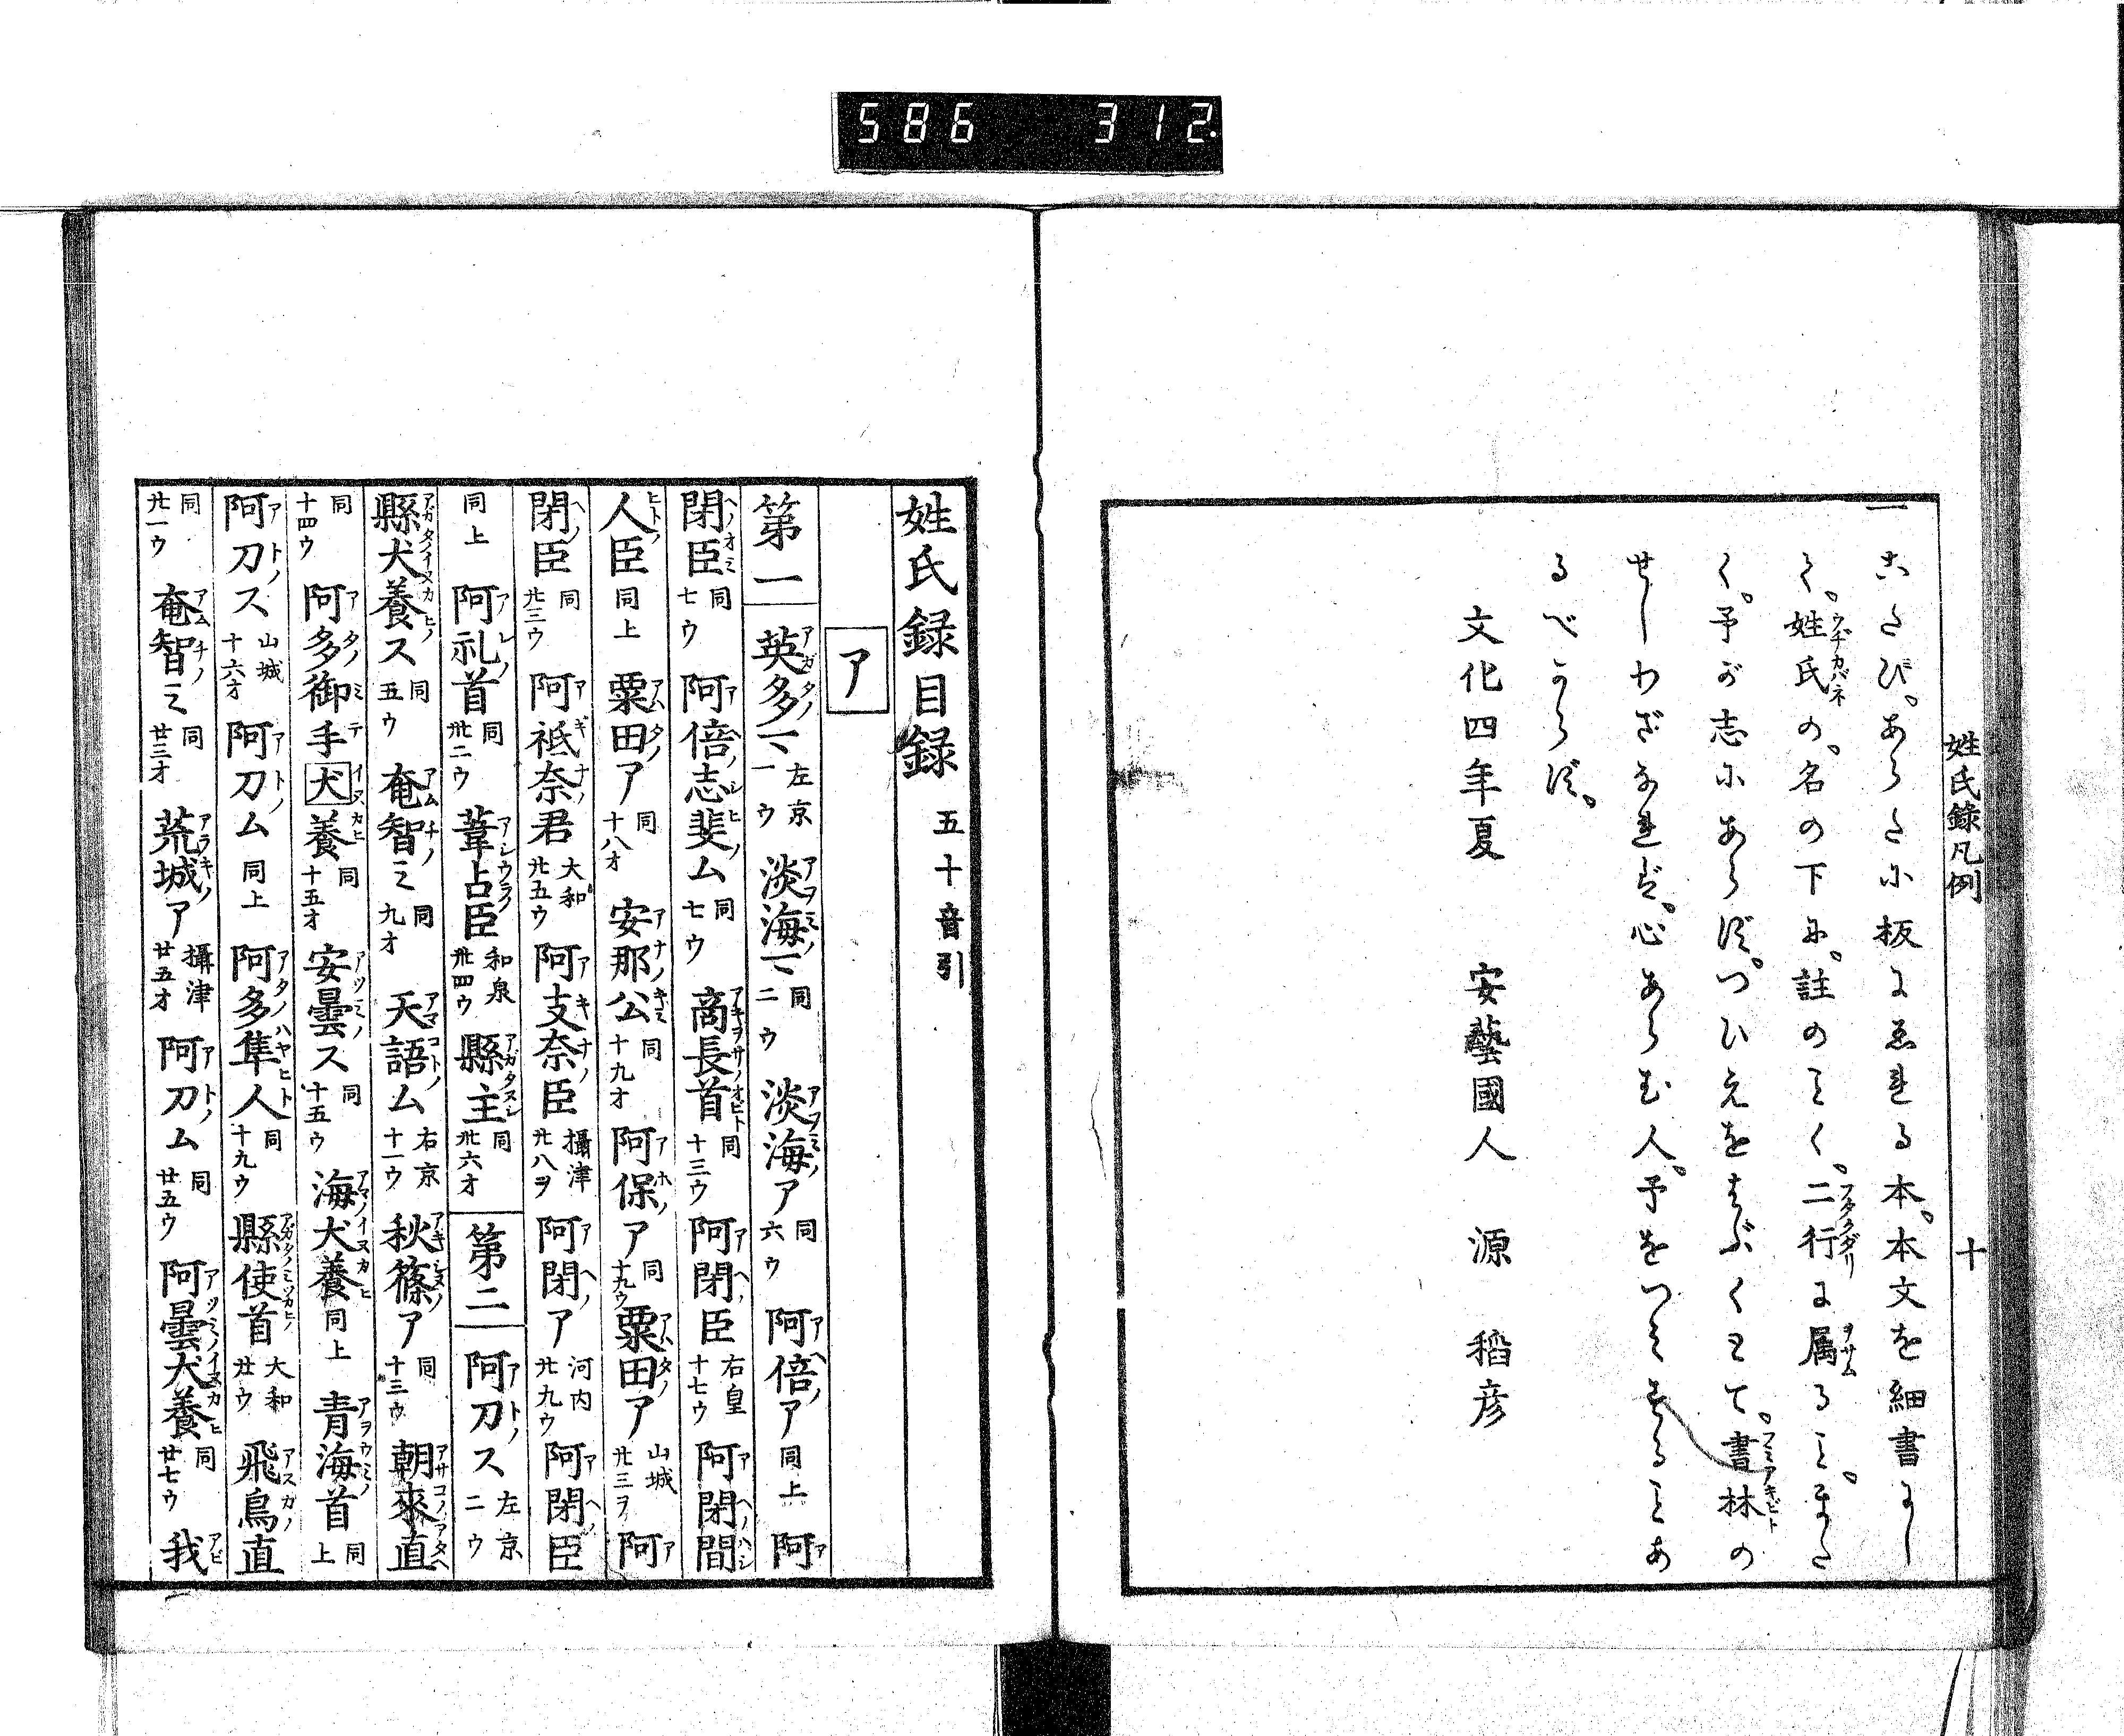 586 312
姓氏錄凡例 十
一 こたび。あらたに板にゑれる本。本文を細書にし
て。姓氏の。名の下に。註のごとく。二行に属ること。また
く。予が志にあらず。つひえをはぶくとて。書林の
せしわざなれば。心あらむ人。予をつみすることあ
るべからず。
文化四年夏 安藝國人 源 稻彦
姓氏録目録 五十音引
ア
第一 英多ミ 左京一ウ 淡海ミ 同二ウ 淡海ア 同六ウ 阿倍ア 同上 阿
閇臣 同七ウ 阿倍志斐ム 同七ウ 商長首 同十三ウ 阿閇臣 右皇十七ウ 阿閇間
人臣 同上 粟田ア 同十八オ 安那公 同十九オ 阿保ア 同十九ウ 粟田ア 山城卅三ヲ 阿
閇臣 同卅三ウ 阿祗奈君 大和卅五ウ 阿支奈臣 攝津卅八ヲ 阿閇ア 河内卅九ウ 阿閇臣
同上 阿礼首 同卌二ウ 葦占臣 和泉卌四ウ 縣主 同卌六オ 第二 阿刀ス 左京二ウ
縣犬養ス 同五ウ 奄智ミ 同九オ 天語ム 右京十一ウ 秋篠ア 同十三ウ 朝來直
同十四ウ 阿多御手犬養 同十五オ 安曇ス 同十五ウ 海犬養 同上 青海首 同上
阿刀ス 山城十六オ 阿刀ム 同上 阿多隼人 同十九ウ 縣使首 大和廿ウ 飛鳥直
同廿一ウ 奄智ミ 同廿三オ 荒城ア 攝津廿五オ 阿刀ム 同廿五ウ 阿曇犬養 同廿七ウ 我